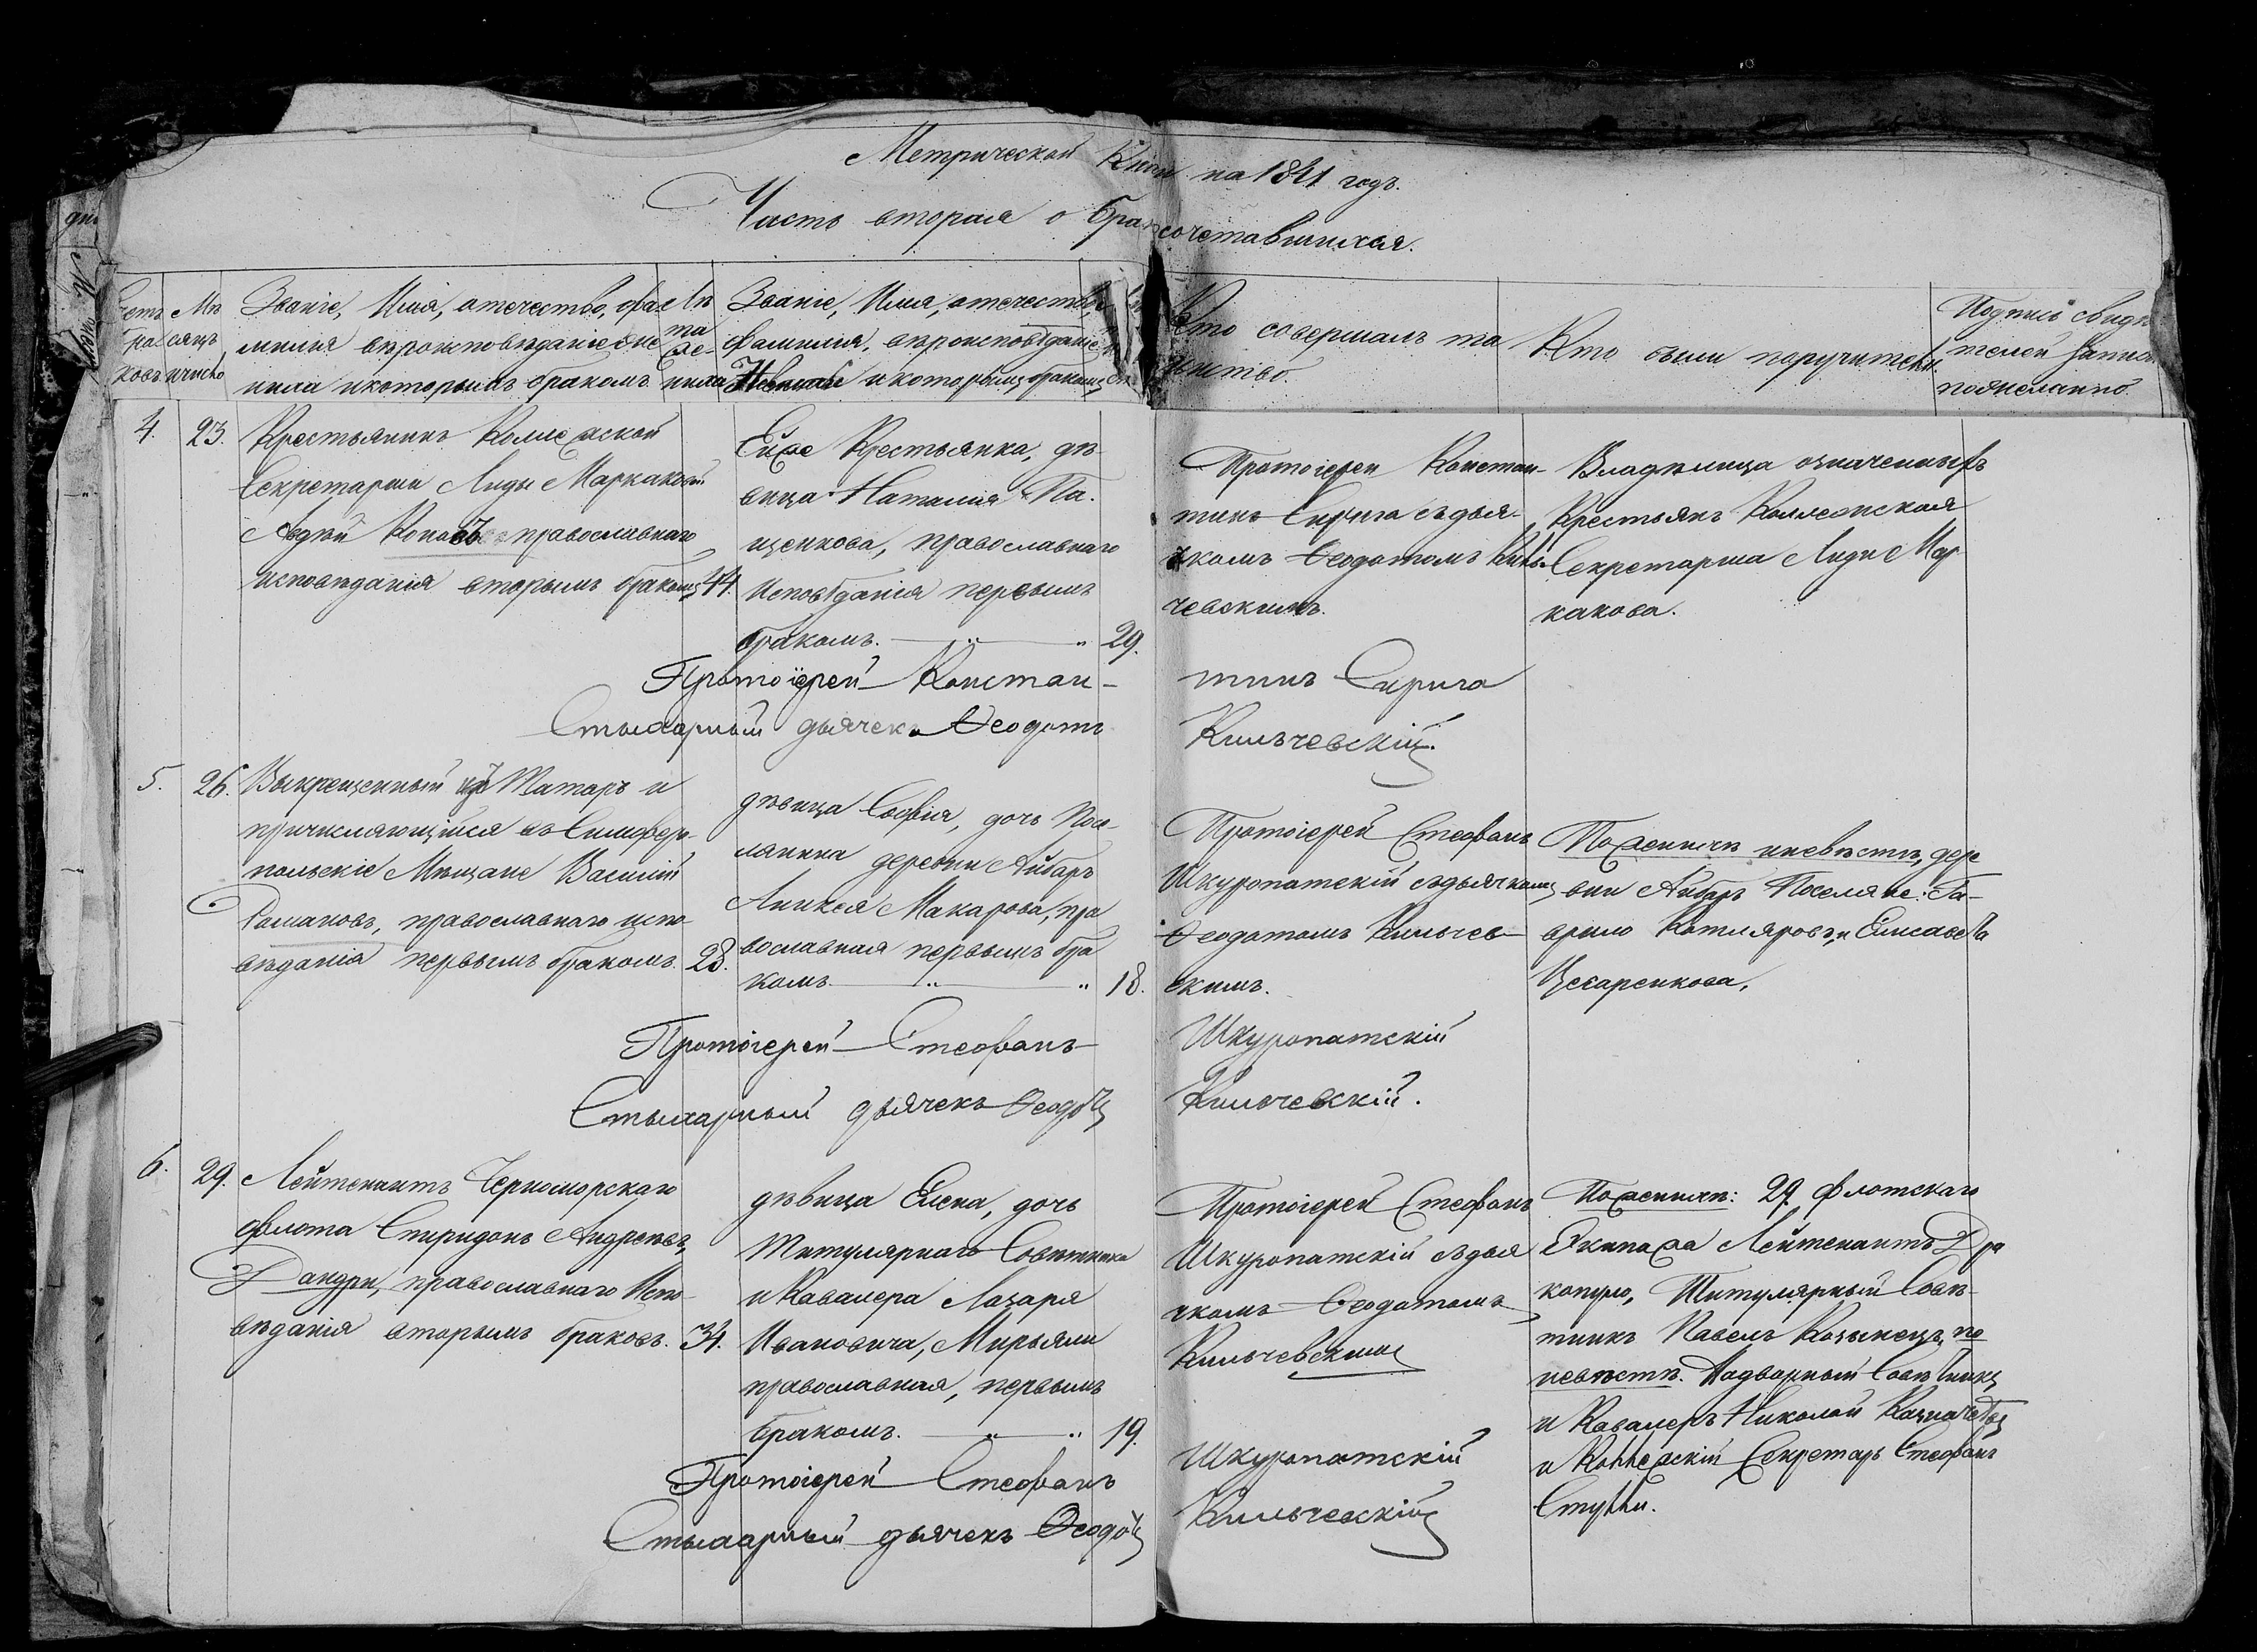 Метрической Книги на 1841 годъ.
Часть вторая о бракосочетавшихся.
Счетъ браковъ
Мѣсяцъ и число
Званіе, Имя, отечество, фа-
милія вѣроисповѣданіе же
ниха и которымъ бракомъ
Лѣта же-
ниха
Званіе, Имя, отечество,
фамилія, вѣроисповѣданіе
Невѣсты и которымъ бракомъ
Кто совершалъ та
инство.
Кто были поручители
Подпись свидѣ
телей записи
по желанію
4.
23.
Крестьянинъ Коллежской
Секретарши Лиды Маркаковой
Авдѣй православнаго
исповѣданія вторымъ бракомъ
44.
Ейже Крестьянка, дѣ-
вица Наталия Па-
щенкова, православнаго
Исповѣданія первымъ
бракомъ.
29.
Протоіерей Констан-
тинъ Сприга съ дья-
чкомъ Ѳеодотомъ Киль-
чевскимъ.
Владѣлица означенныхъ
Крестьянъ Коллежская
Секретарша Лида Мар
какова.
Протоіерей Констан-
тинъ Сприга
Стыхарный дьячекъ Ѳеодотъ
Кильчевскій.
5.
26.
Выкрещенный изъ Татаръ и
причисляющійся въ Симфер-
польскіе Мѣщане Василий
Романовъ, православнаго испо-
вѣданія первымъ бракомъ.
28.
дѣвица Софія, дочь Посе-
лянина деревни Айбаръ
Аникея Макарова, пра
вославная первымъ бра
комъ
18.
Протоіерей Стефанъ
Шкуропатскій съ дьячкомъ
Ѳеодотомъ Кильчев
скимъ.
По женихѣ и невѣстѣ, дере
вни Айбаръ Поселяне: Га-
врило Котляровъ, и Елисавета
Цесаренкова,
Протоіерей Стефанъ
Шкуропатскій
Стыхарный дьячекъ Ѳеодотъ
Кильчевскій.
6.
29.
Лейтенантъ Черноморскаго
флота Спиридонъ Андреевъ,
Дандри, православнаго Испо-
вѣданія вторымъ бракомъ.
34.
дѣвица Елена, дочь
Титулярнаго Совѣтника
и Кавалера Лазаря
Ивановича, Мирьяли
православная, первымъ
бракомъ.
19.
Протоіерей Стефанъ
Шкуропатскій съ дья
чкомъ Ѳеодотомъ
Кильчевскимъ
По женихѣ: 29 флотскаго
Экипажа Лейтенантъ Дра
копуло, Титулярный Совѣ-
тникъ Павелъ Козынецъ, по
невѣстѣ. Надворный Совѣтникъ
и Кавалеръ Николай Казначеевъ
и Коллежскій Секретарь Стефанъ
Стулли.
Протоіерей Стефанъ
Шкуропатскій
Стыхарный дьячекъ Ѳеодотъ
Кильчевскій